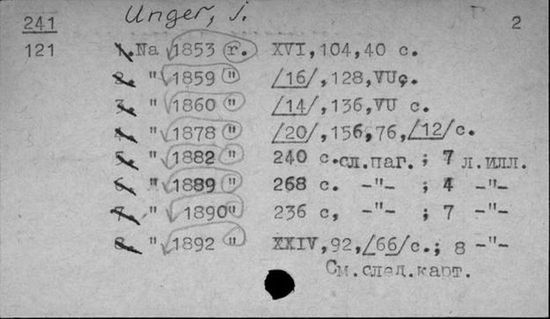 Unger, J.
241 2
121 1. Na 1853 г. XVI,104,40 с.
2. " 1859 " /16/,128,VUс.
3. " 1860 " /14/,136,VU с.
4. " 1878 " /20/,156,76,/12/с.
5. " 1882 " 240 с.сл.паг.; 7 л.илл.
6. " 1889 " 268 с. -"- ; 4 -"-
7. " 1890" 236 с, -"- ; 7 -"-
8. " 1892 " XXIV,92,/66/с.; 8 -"-
См.след.карт.